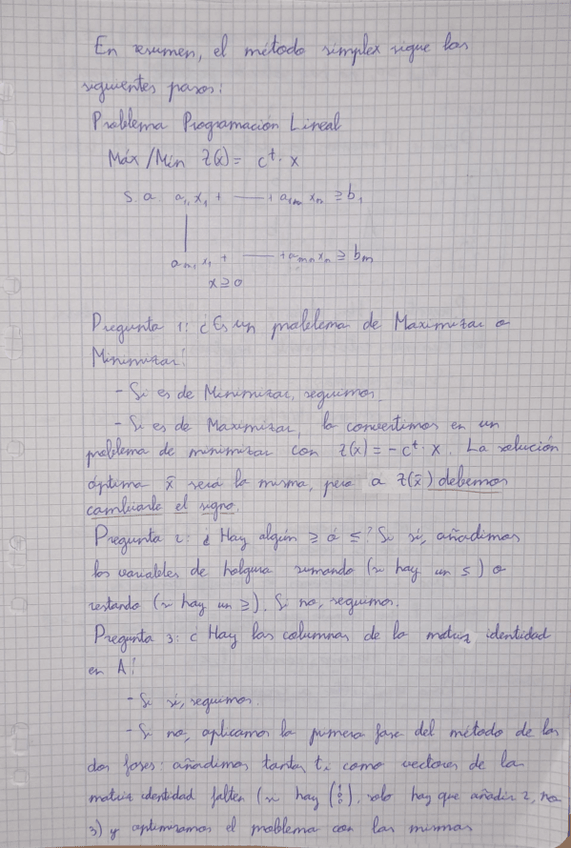 En resumen, el método simplex sigue los
siguientes pasos:
Problema Programación Lineal
Máx/Mín Z(x) = cᵗ · x
s.a. a₁₁ x₁ + —— + a₁ₙ xₙ ≥ b₁
|
aₘ₁ x₁ + —— + aₘₙ xₙ ≥ bₘ
x ≥ 0
Pregunta 1: ¿Es un problema de Maximizar o
Minimizar?
- Si es de Minimizar, seguimos.
- Si es de Maximizar, lo convertimos en un
problema de minimizar con Z(x) = -cᵗ · x. La solución
óptima x̄ será la misma, pero a Z(x̄) debemos
cambiarle el signo.
Pregunta 2: ¿Hay algún ≥ ó ≤? Si sí, añadimos
las variables de holgura sumando (si hay un ≤) o
restando (si hay un ≥). Si no, seguimos.
Pregunta 3: ¿Hay las columnas de la matriz identidad
en A?
- Si sí, seguimos.
- Si no, aplicamos la primera fase del método de las
dos fases: añadimos tantas tᵢ como vectores de la
matriz identidad falten (si hay (1 0 0), solo hay que añadir 2, no
3) y optimizamos el problema con las mismas